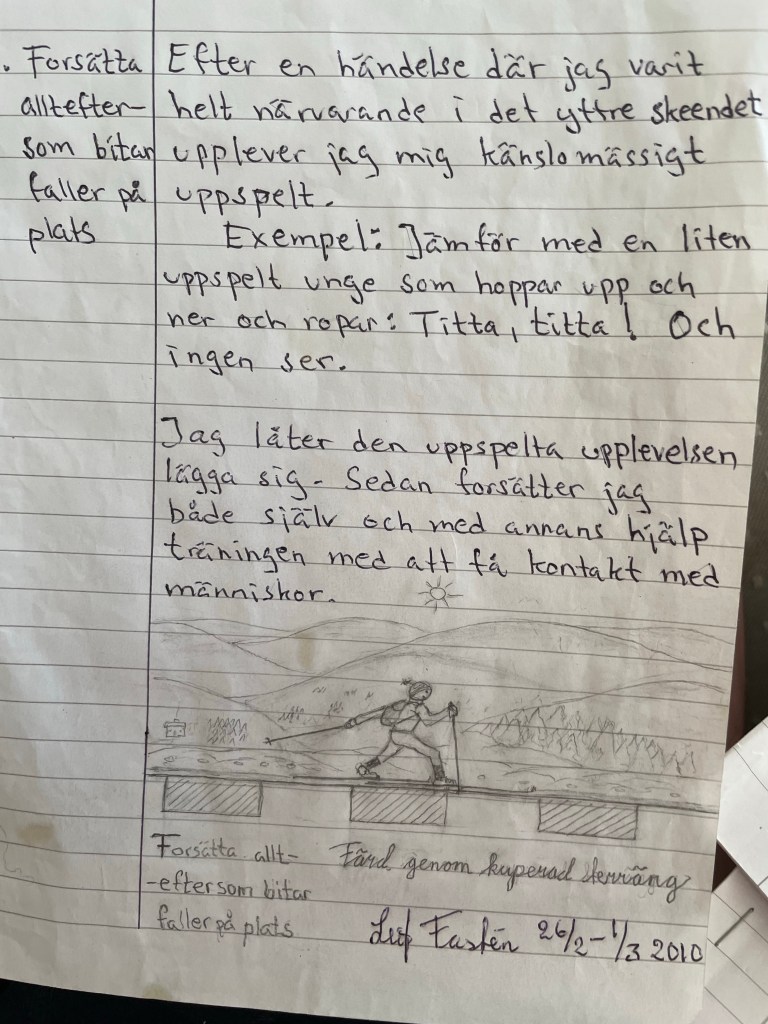 . Forsätta
alltefter-
som bitar
faller på
plats
Efter en händelse där jag varit
helt närvarande i det yttre skeendet
upplever jag mig känslomässigt
uppspelt.
Exempel: Jämför med en liten
uppspelt unge som hoppar upp och
ner och ropar: Titta, titta! Och
ingen ser.
Jag låter den uppspelta upplevelsen
lägga sig - Sedan forsätter jag
både själv och med annans hjälp
träningen med att få kontakt med
människor.
Forsätta allt-
-eftersom bitar
faller på plats
Färd genom kuperad terräng
26/2-1/3 2010